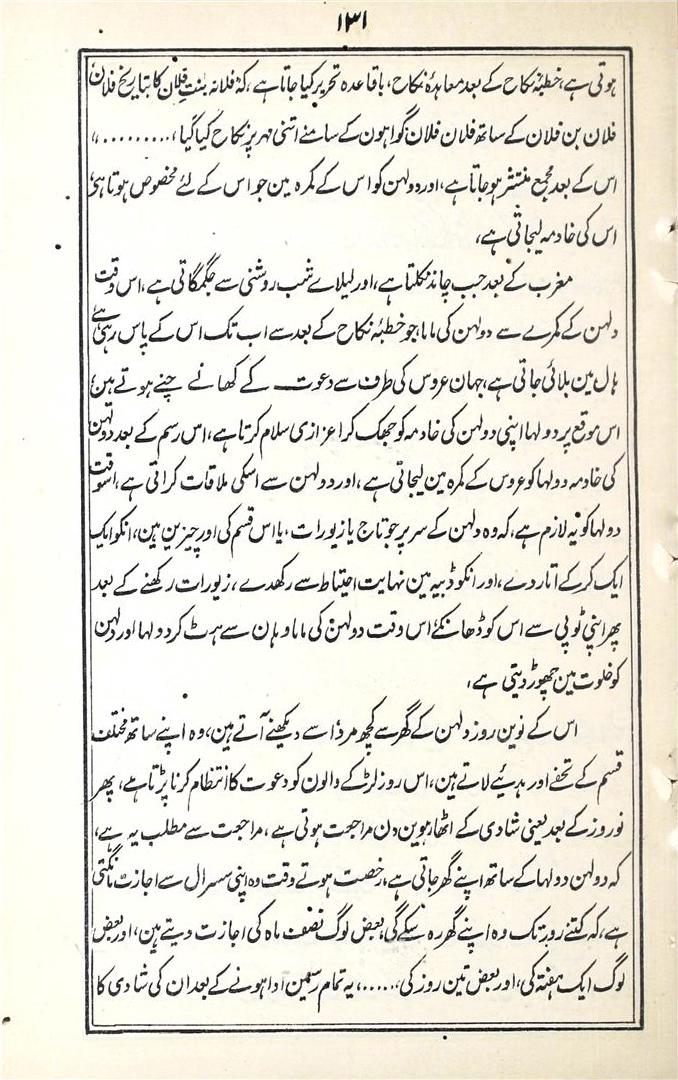 ۱۳۱
ہوتی ہے، خطبۂ نکاح کے بعد معاہدۂ نکاح، باقاعدہ تحریر کیا جاتا ہے، کہ فلانہ بنت فلان کا بتاریخ فلان
فلان بن فلان کے ساتھ فلان فلان گواہون کے سامنے اتنی مہر پر نکاح کیا گیا،.........،
اس کے بعد مجمع منتشر ہو جاتا ہے، اور دولہن کو اس کے کمرہ مین جو اس کے لئے مخصوص ہوتا ہے
اس کی خادمہ لیجاتی ہے،
مغرب کے بعد جب چاند نکلتا ہے، اور لیلائے شب روشنی سے جگمگاتی ہے، اس وقت
دلہن کے کمرے سے دولہن کی ماما، جو خطبۂ نکاح کے بعد سے اب تک اس کے پاس رہی ہے
ہال مین بلائی جاتی ہے، جہان عروس کی طرف سے دعوت کے کھانے چنے ہوتے ہین،
اس موقع پر دولہا اپنی دولہن کی خادمہ کو جھک کر اعزازی سلام کرتا ہے، اس رسم کے بعد دولہن
کی خادمہ دولہا کو عروس کے کمرہ مین لیجاتی ہے، اور دولہن سے اسکی ملاقات کراتی ہے، اسوقت
دولہا کو یہ لازم ہے، کہ وہ دلہن کے سر پر جو تاج یا زیورات، یا اس قسم کی اور چیزین ہین، انکو ایک
ایک کر کے اتار دے، اور انکو ڈبیہ مین نہایت احتیاط سے رکھدے، زیورات رکھنے کے بعد
پھر اپنی ٹوپی سے اس کو ڈھانکے اس وقت دولہن کی ماما وہان سے ہٹ کر دولہا اور دلہن
کو خلوت مین چھوڑ دیتی ہے،
اس کے نوین روز دلہن کے گھر سے کچھ مرد اسے دیکھنے آتے ہین، وہ اپنے ساتھ مختلف
قسم کے تحفے اور ہدیئے لاتے ہین، اس روز لڑکے والون کو دعوت کا انتظام کرنا پڑتا ہے، پھر
نو روز کے بعد یعنی شادی کے اٹھارہوین دن مراجعت ہوتی ہے، مراجعت سے مطلب یہ ہے،
کہ دولہن دولہا کے ساتھ اپنے گھر جاتی ہے، رخصت ہوتے وقت وہ اپنی سسرال سے اجازت مانگتی
ہے، کہ کتنے روز تک وہ اپنے گھر رہ سکے گی، بعض لوگ نصف ماہ کی اجازت دیتے ہین، اور بعض
لوگ ایک ہفتہ کی، اور بعض تین روز کی،.....، یہ تمام رسمین ادا ہونے کے بعد ان کی شادی کا